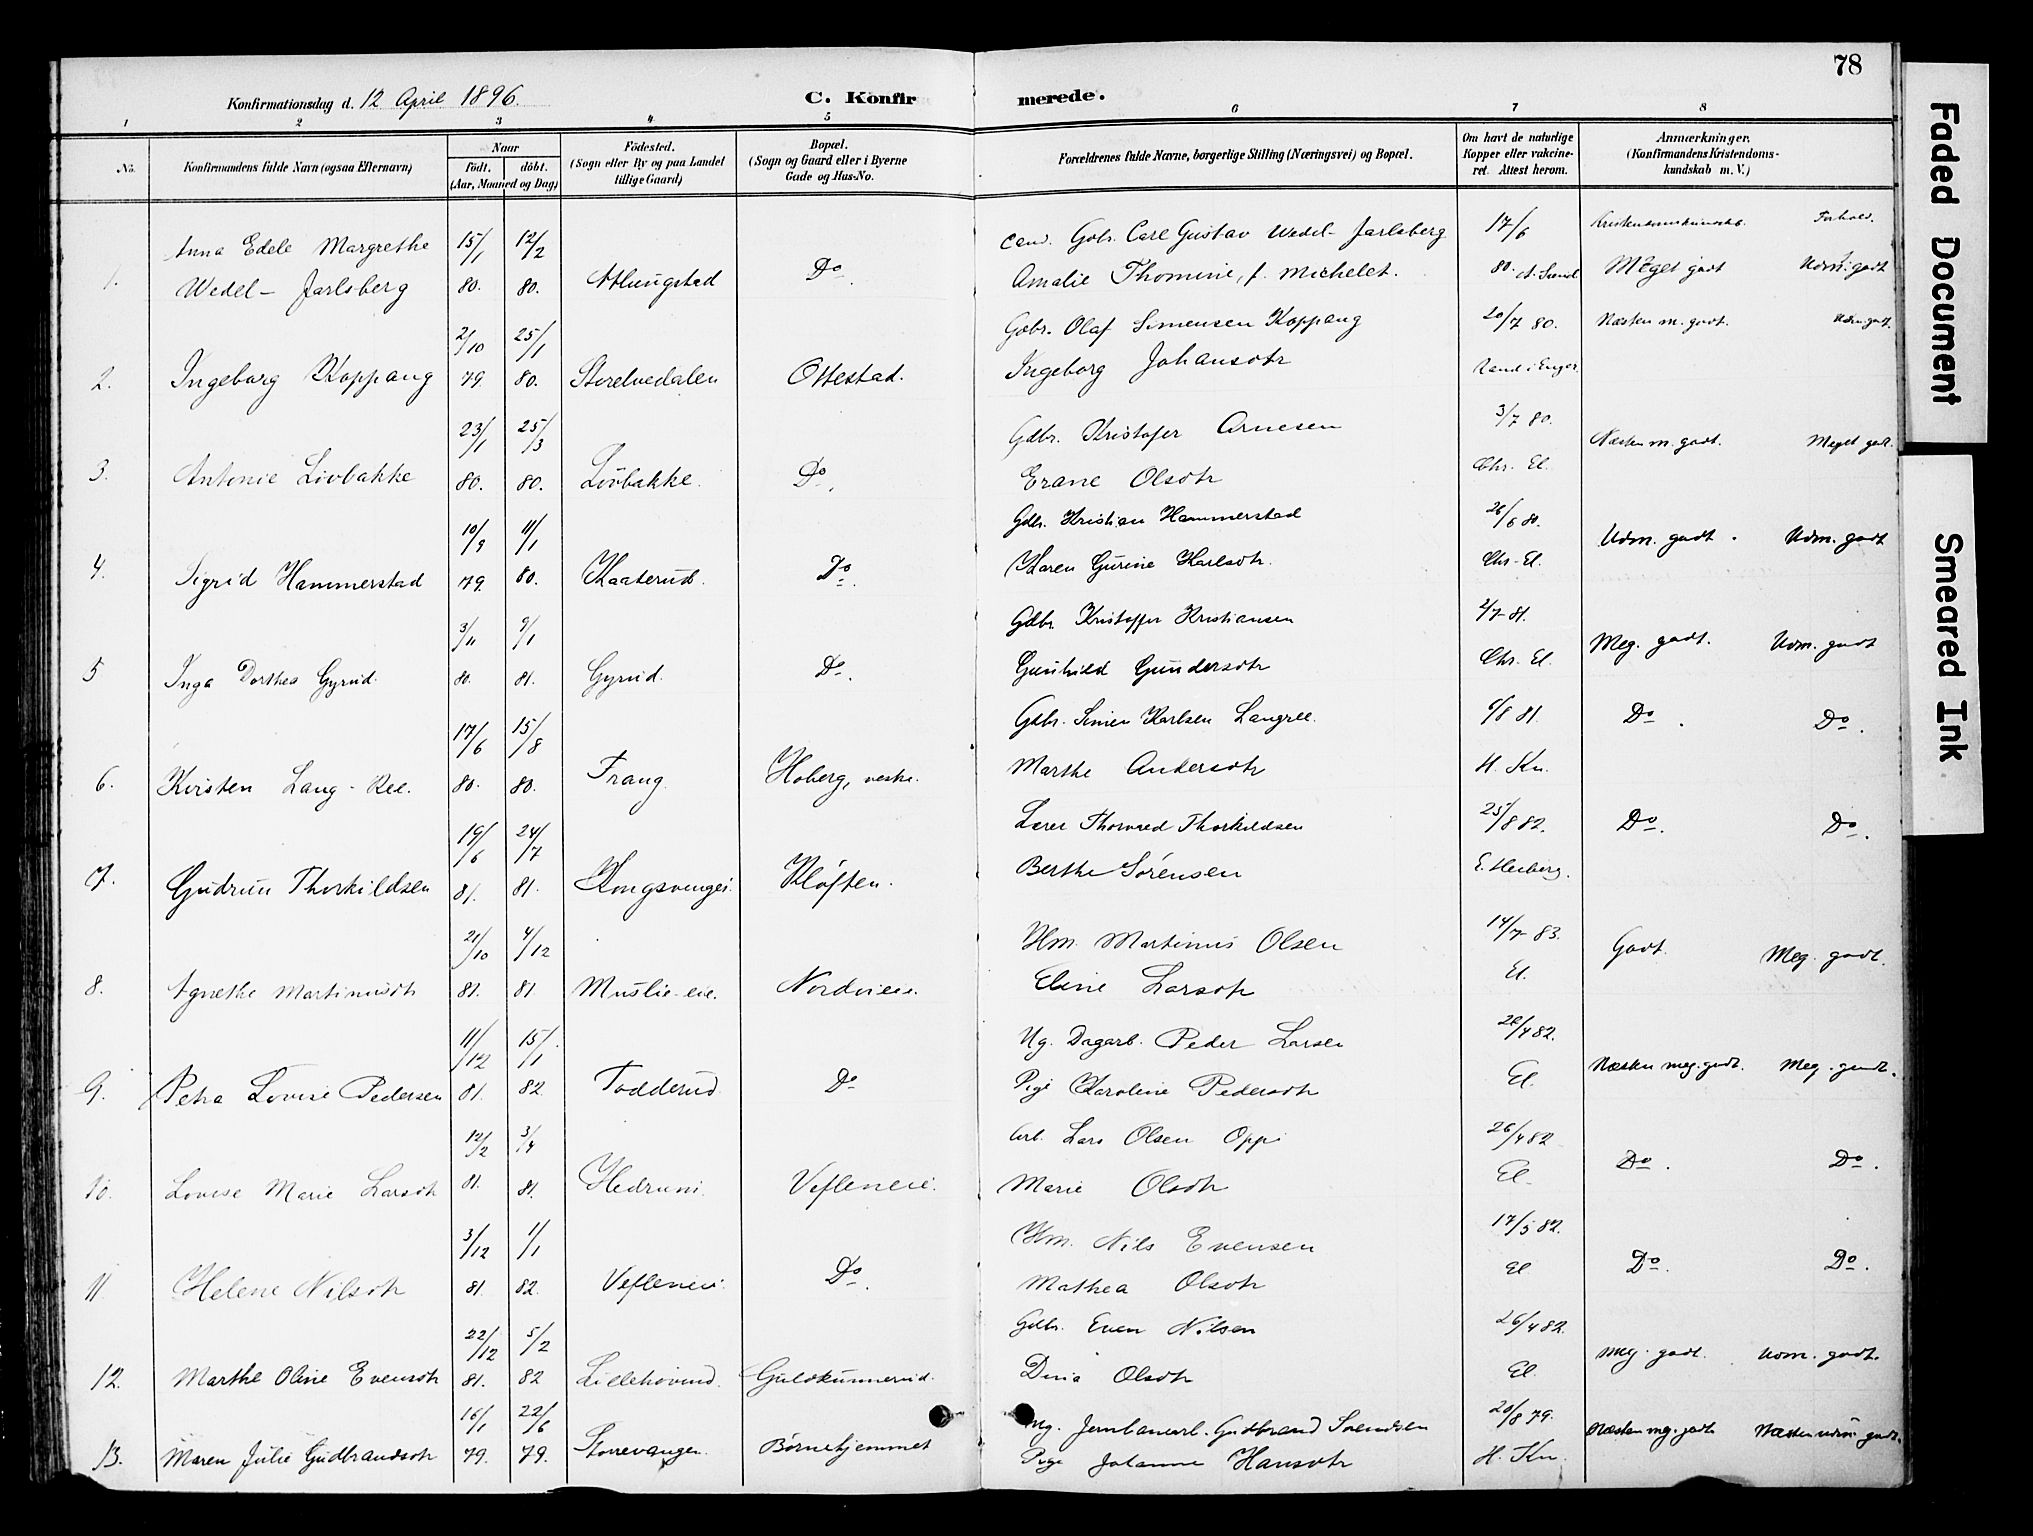 78
Konfirmationsdag d. 12 April 1896.
C. Konfirmerede.
1 2 3 4 5 6 7 8
No.
Konfirmandens fulde Navn (ogsaa Efternavn)
Naar
født. døbt.
(Aar, Maaned og Dag)
Fødested.
(Sogn eller By og paa Landet
tillige Gaard)
Bopæl.
(Sogn og Gaard eller i Byerne
Gade og Hus-No.
Forældrenes fulde Navne, borgerlige Stilling (Næringsvei) og Bopæl.
Om havt de naturlige
Kopper eller vakcine-
ret. Attest herom.
Anmærkninger.
(Konfirmandens Kristendoms-
kundskab m. V.)
Kristendomskundskb. Forhold.
Anna Edele Margrethe 15/1 12/2 cand. Gbr. Carl Gustav Wedel-Jarlsberg 17/6
1. Wedel-Jarlsberg 80. 80. Atlungstad Do. Amalie Thomine, f. Michelet. 80. Meget godt Udm. godt
2/10 25/1 Gdbr. Olaf Simensen Koppang 20/7 80. Næsten m. godt. Udm. godt.
2. Ingeborg Koppang 79. 80. Storelvedalen Ottestad. Ingeborg Johansdtr
23/1 25/3 Gdbr. Kristofer Arnesen 3/7 80. Næsten m. godt. Meget godt.
3. Antonie Lövbakke 80. 80. Lövbakke. Do. Erane Olsdtr Chr. El.
10/9 11/1 Gdbr. Kristian Hammerstad 26/6 80. Udm. godt. Udm. godt
4. Sigrid Hammerstad 79. 80. Kaaterud. Do. Karen Gurine Karlsdtr. Chr. El.
3/11 9/1 Gdbr. Kristoffer Kristiansen 2/7 81. Meg. godt. Udm. godt
5 Inga Dorthea Gyrud. 80. 81. Gyrud. Do. Gunhild Gundersdtr Chr. El.
17/6 15/8 Gdbr. Simen Karlsen Langree. 9/8 81. Do. Do.
6. Kirsten Lang-Ree. 80. 80. Frang Hoberg, vestre. Marthe Andersdtr H. Kn.
19/6 24/7 Lærer Thorvald Thorkildsen 25/8 82. Do. Do.
7. Gudrun Thorkildsen 81. 81. Kongsvinger Kløften. Berthe Sörensen E. Heiberg.
21/10 4/12 Hm. Martinus Olsen 14/7 83. Godt. Meg. godt.
8. Agnethe Martinusdtr 81. 81 Muslie-eie. Nordvieie. Eline Larsdtr El.
11/12 15/1 Ug. Dagarb. Peder Larsen 26/4 82. Næsten meg. godt. Meg. godt.
9. Petra Lovise Pedersen 81. 82. Todderud Do Pige Karoline Pedersdtr El.
12/2 3/4 Arb. Lars Olsen Oppi 26/4 82 Do. Do.
10. Lovise Marie Larsdtr 81. 81. Hedrum. Vefleneie. Marie Olsdtr El.
3/12 1/1 Hm. Nils Evensen 17/5 82. Do. Do.
11. Helene Nilsdtr 81. 82. Vefleneie. Do. Mathea Olsdtr El
22/12 5/2 Gdbr. Even Nilsen 26/4 82. Meg. godt. Udm. godt.
12. Marthe Oline Evensdtr 81. 82 Lillehovind. Guldkunnerud. Dina Olsdtr El.
16/1 22/6 Ug. Jernbanearb. Gudbrand Svendsen 20/8 79. Næsten mg. godt Næsten udm. godt.
13. Maren Julie Gudbrandsdtr 79. 79. Storrevangen. Børnehjemmet Pige Johanne Hansdtr H. Kn.
Faded Document
Smeared Ink